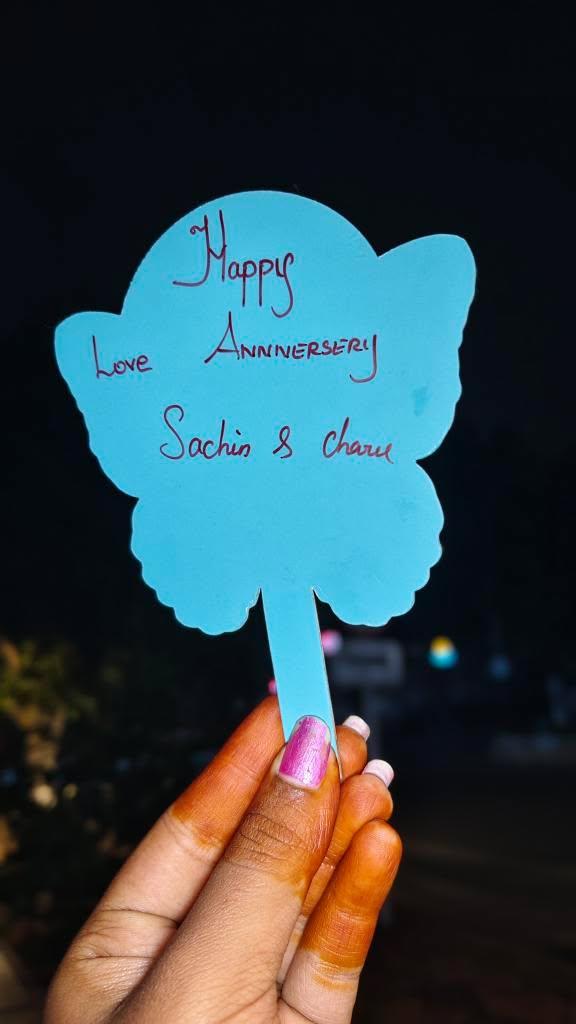 Happy
Love Anniversery
Sachin & Charu